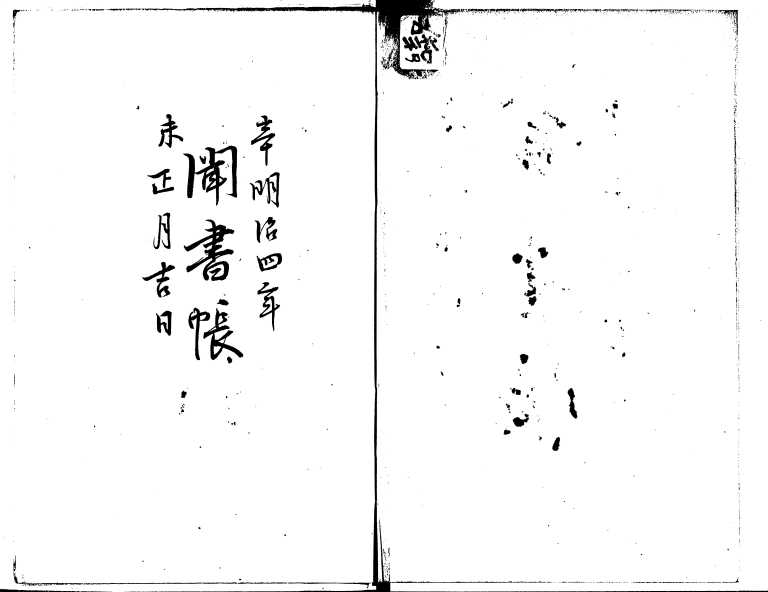 辛明治四年
聞書帳
未正月吉日